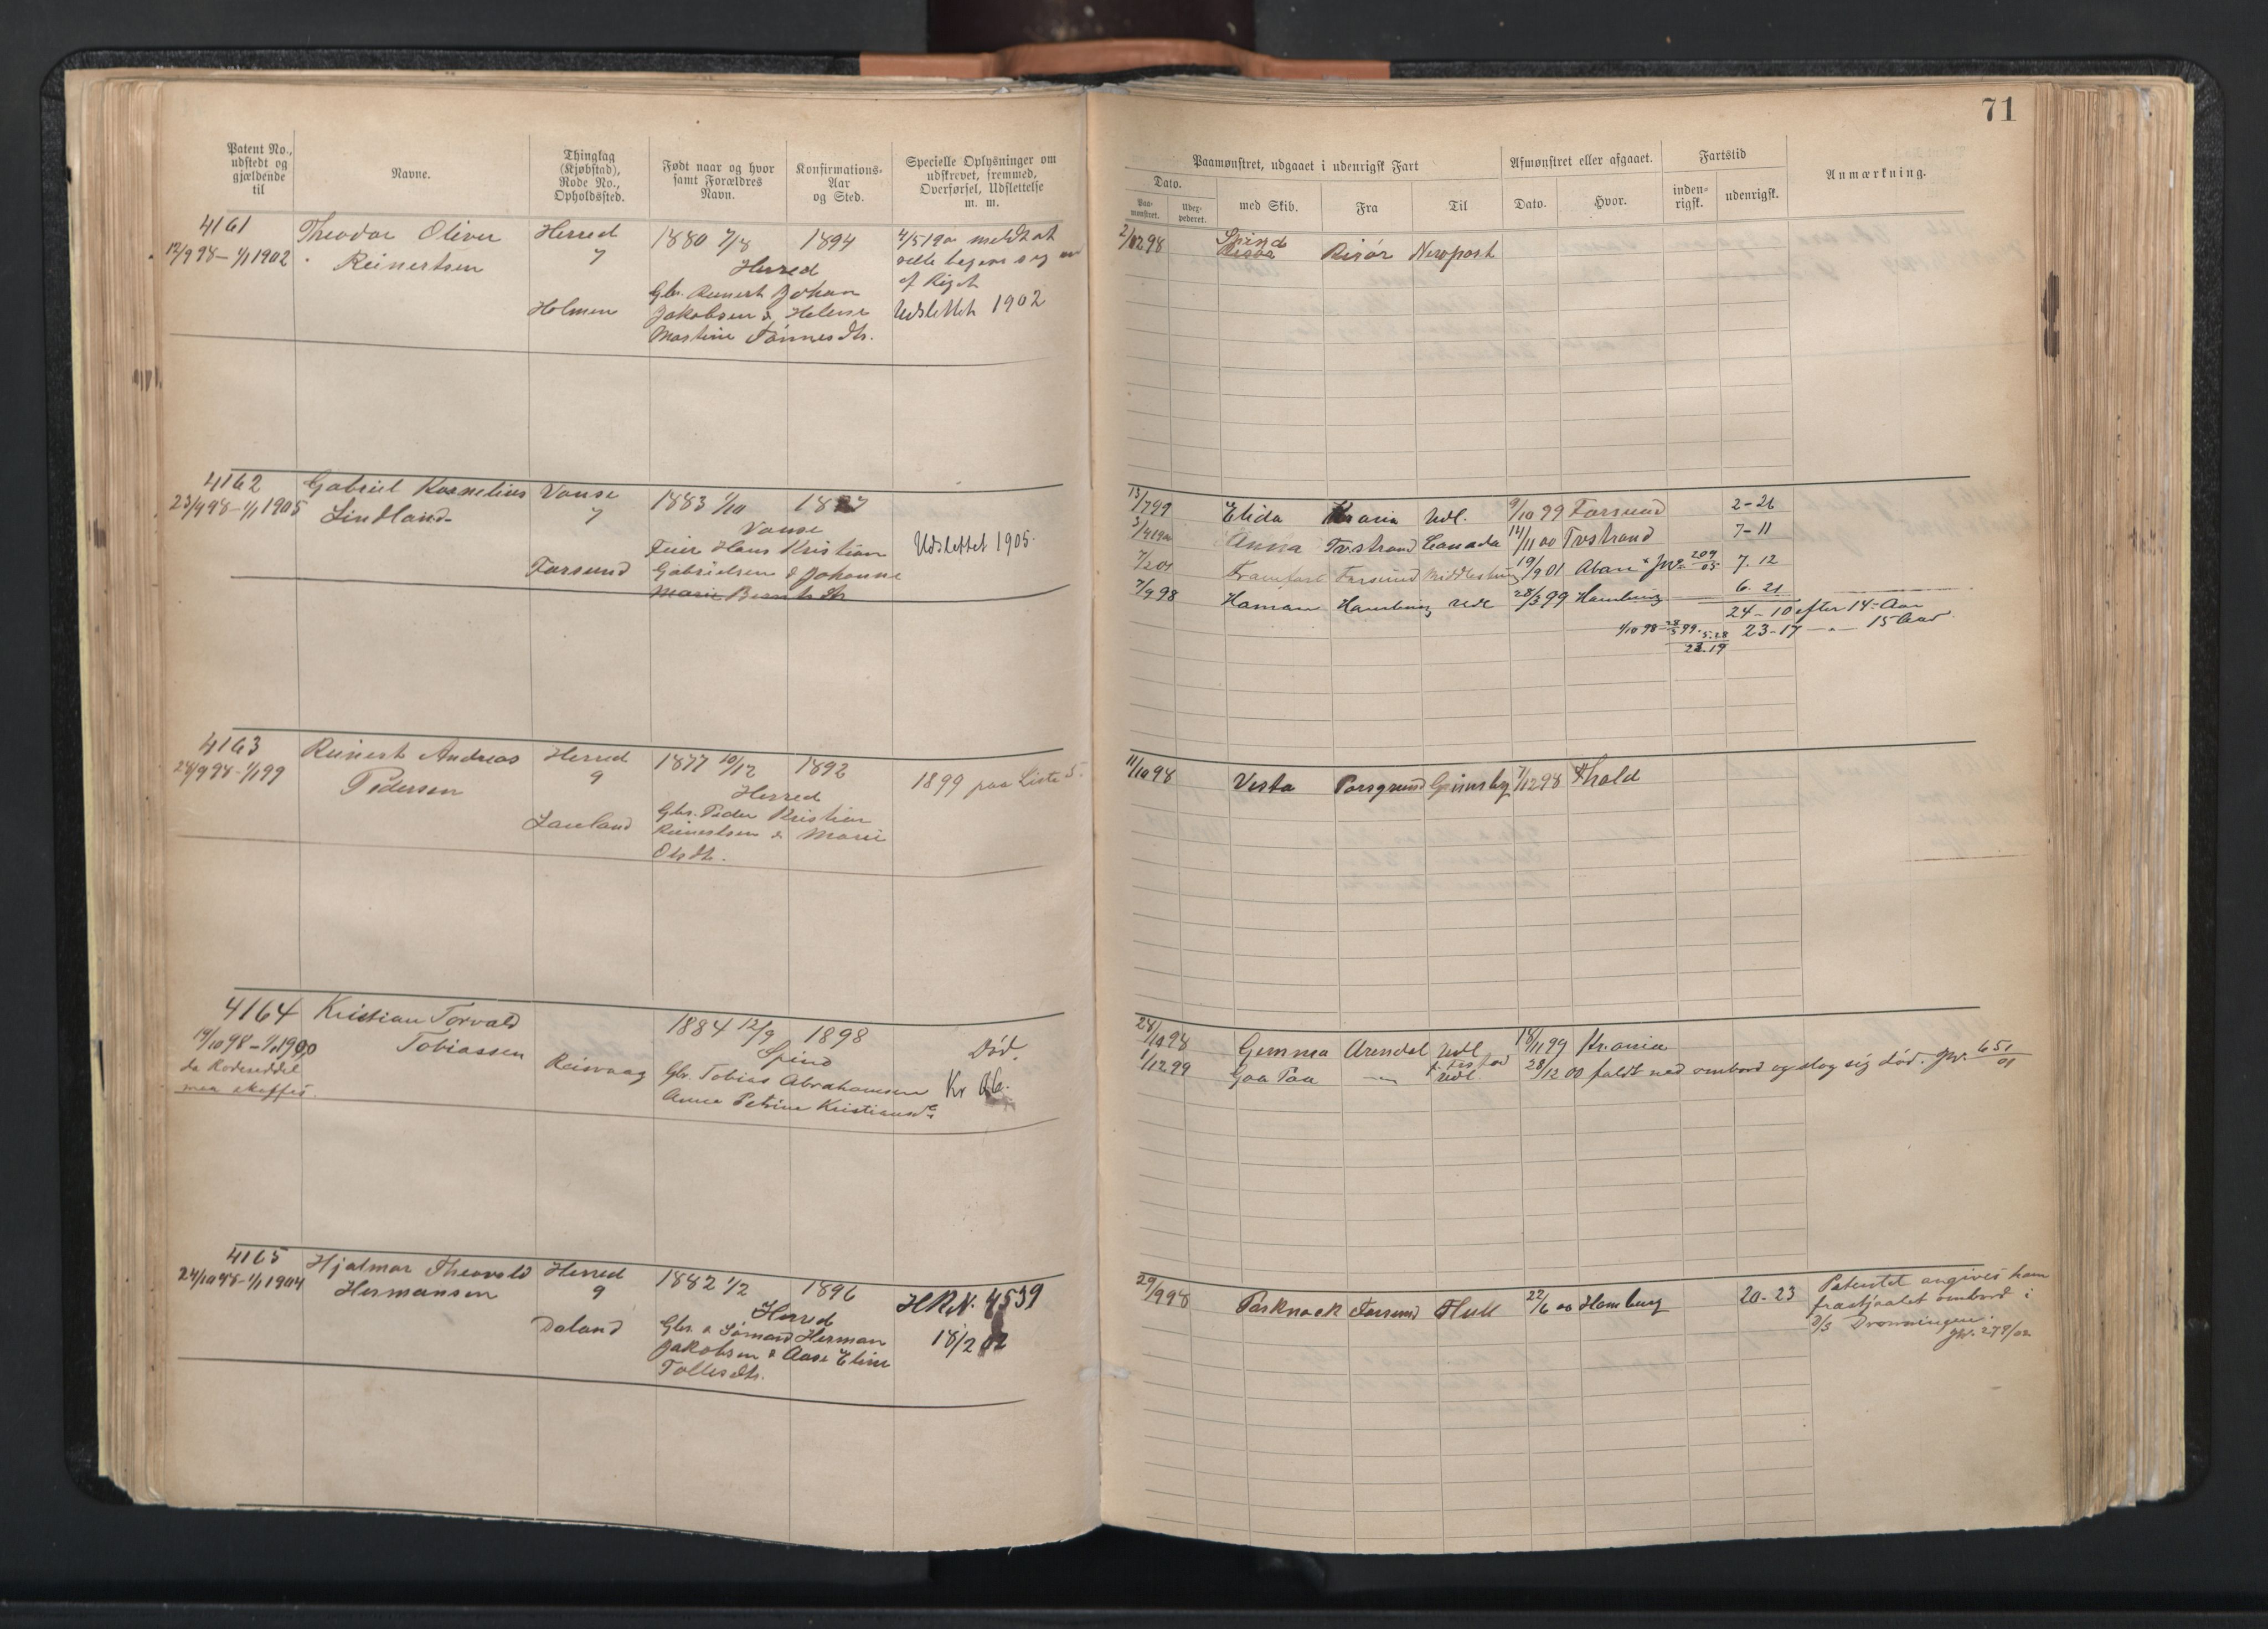 71
Patent No., udstedt og gjældende til
Navne.
Thinglag (Kjøbstad), Rode No., Opholdssted.
Født naar og hvor samt Forældres Navn.
Konfirmations-Aar og Sted.
Specielle Oplysninger om udskrevet, fremmed, Overførsel, Udslettelse m. m.
Paamønstret, udgaaet i udenrigsk Fart
Afmønstret eller afgaaet.
Fartstid
Anmærkning.
Dato.
Paamønstret.
Udexpederet.
med Skib.
Fra
Til
Dato.
Hvor.
indenrigsk.
udenrigsk.
4161
12/9 98 – 1/1 1902
Theodor Oliver
Reinertsen
Herred
7
Holmen
1880 7/8
1894
Herred
Gbr. Reinert Johan
Jakobsen & Helene
Martine Tønnesdtr.
4/5 1900 meldt at
ville begive sig ud
af Riget
Udslettet 1902
2/12 98
Spind
Risør
Newport
4162
23/9 98 – 1/1 1905
Gabriel Kornelius
Lindland
Vanse
7
Farsund
1883 1/10
1897
Vanse
Feier Hans Kristian
Gabrielsen & Johanne
Marie Berntsdtr
Udslettet 1905.
13/7 99 Elida Krania Udl. 9/10 99 Farsund 2-26
3/4 1900 Anna Tvstrand Canada 14/11 00 Tvstrand 7-11
7/2 01 Framfart Farsund Middlesbury 19/9 01 Aban Jw. 209/05 7.12
7/9 98 Haman Hamburg Udl 28/3 99 Hamburg 6.21
24-10 efter 14 Aar
1/10 98 – 28/3 99. 5.28 23-17 – " – 15 Aar
23.19
4163
28/9 98 – 1/1 99
Reinert Andreas
Pedersen
Herred
9
Lauland
1877 10/12
1892
Herred
Gbr. Peder Kristian
Reinertsen & Marie
Olsdtr.
1899 paa Liste 5.
11/10 98 Vesta Porsgrund Grimsby 7/12 98 Fhald
4164
19/10 98 – 1/1 1900
da Rodeseddel
maa skaffes.
Kristian Torvald
Tobiassen
Reisvaag
1884 12/9
1898
Spind
Gbr. Tobias Abrahamsen
Anna Petrine Kristiansd.
Død.
24/10 98 Gemma Arendal Udl 18/11 99 Kr.ania
1/12 99 Gaa Paa – " – Udl. 28/12 00 faldt ned ombord og slog sig død. Jw. 651/01
4165
24/10 98 – 1/1 1904
Hjalmar Theovald
Hermansen
Herred
9
Daland
1882 1/2
1896
Herred
Gbr. & Sømand Herman
Jakobsen & Aase Eline
Tollesdtr.
HRN. 4539
18/2 02
29/9 98 Parknook Farsund Hull 22/6 00 Hamburg 20-23
Patentet angives ham
frastjaalet ombord i
D/S Dronningen.
Jw. 278/02